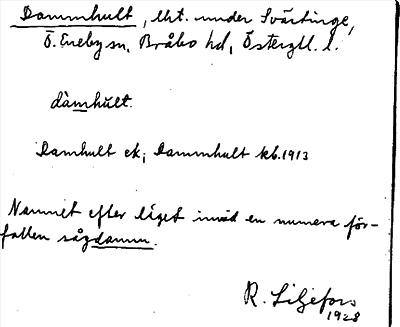 Dammhult, lht. under Svärtinge,
Ö. Eneby sn, Bråbo hd, Östergtl. l.
dàmhúlt.
Damhult ek; Dammhult kb. 1913
Namnet efter läget invid en numera för-
fallen sågdamm.
R. Liljefors
1928